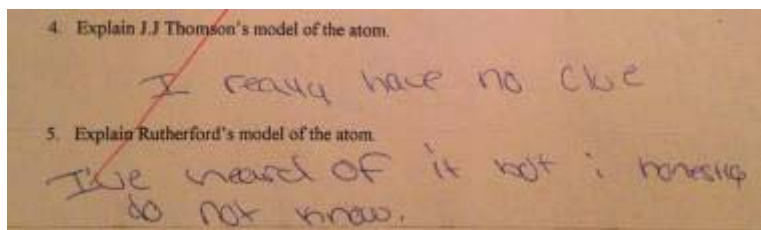 4. Explain J.J Thomson's model of the atom.
I really have no clue
5. Explain Rutherford's model of the atom.
I've heard of it but i honestly
do not know.